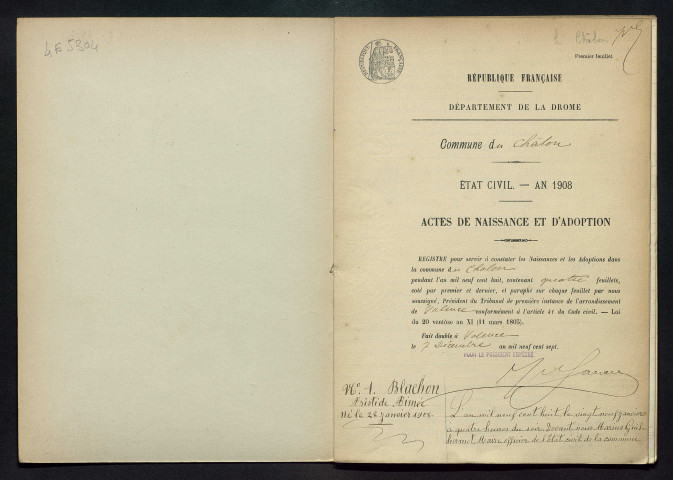 4E 5304
Le Châlon
Premier feuillet.
RÉPUBLIQUE FRANÇAISE
RÉPUBLIQUE FRANÇAISE
DÉPARTEMENT DE LA DROME
Commune du Châlon
ÉTAT CIVIL. — AN 1908
ACTES DE NAISSANCE ET D'ADOPTION
REGISTRE pour servir à constater les Naissances et les Adoptions dans
la commune du Châlon
pendant l'an mil neuf cent huit, contenant quatre feuillets,
coté par premier et dernier, et paraphé sur chaque feuillet par nous
soussigné, Président du Tribunal de première instance de l'arrondissement
de Valence conformément à l'article 41 du Code civil. — Loi
du 20 ventôse an XI (11 mars 1803).
Fait double à Valence
le 7 Décembre an mil neuf cent sept.
POUR LE PRÉSIDENT EMPÊCHÉ
N° 1. Blachon
Aristide Aimée
Né le 28 janvier 1908
L'an mil neuf cent huit le vingt neuf janvier
à quatre heures du soir Devant nous Marius
Maire officier de l'état civil de la commune